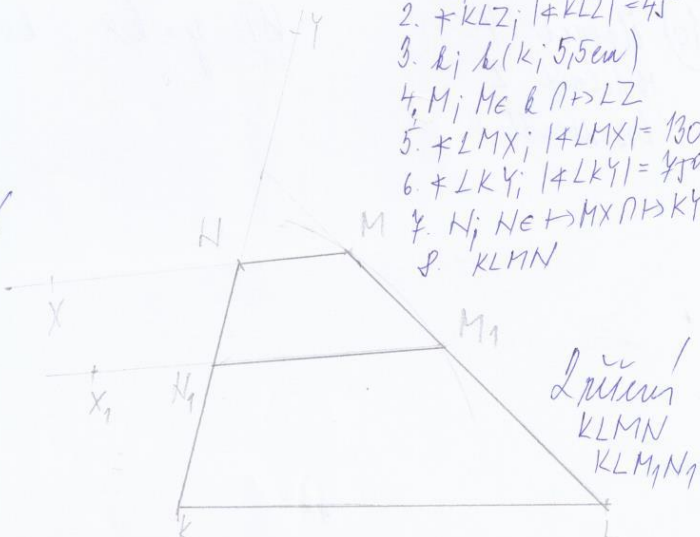 2. ∢KLZ; |∢KLZ| = 45
3. k; k(K; 5,5cm)
4. M; M∈ k ∩ ↦LZ
5. ∢LMX; |∢LMX| = 130
6. ∢LKY; |∢LKY| = 75°
7. N; N∈ ↦MX ∩ ↦KY
8. KLMN
Y
N
M
X
M1
X1
N1
2 řešení
KLMN
KLM1N1
K
L